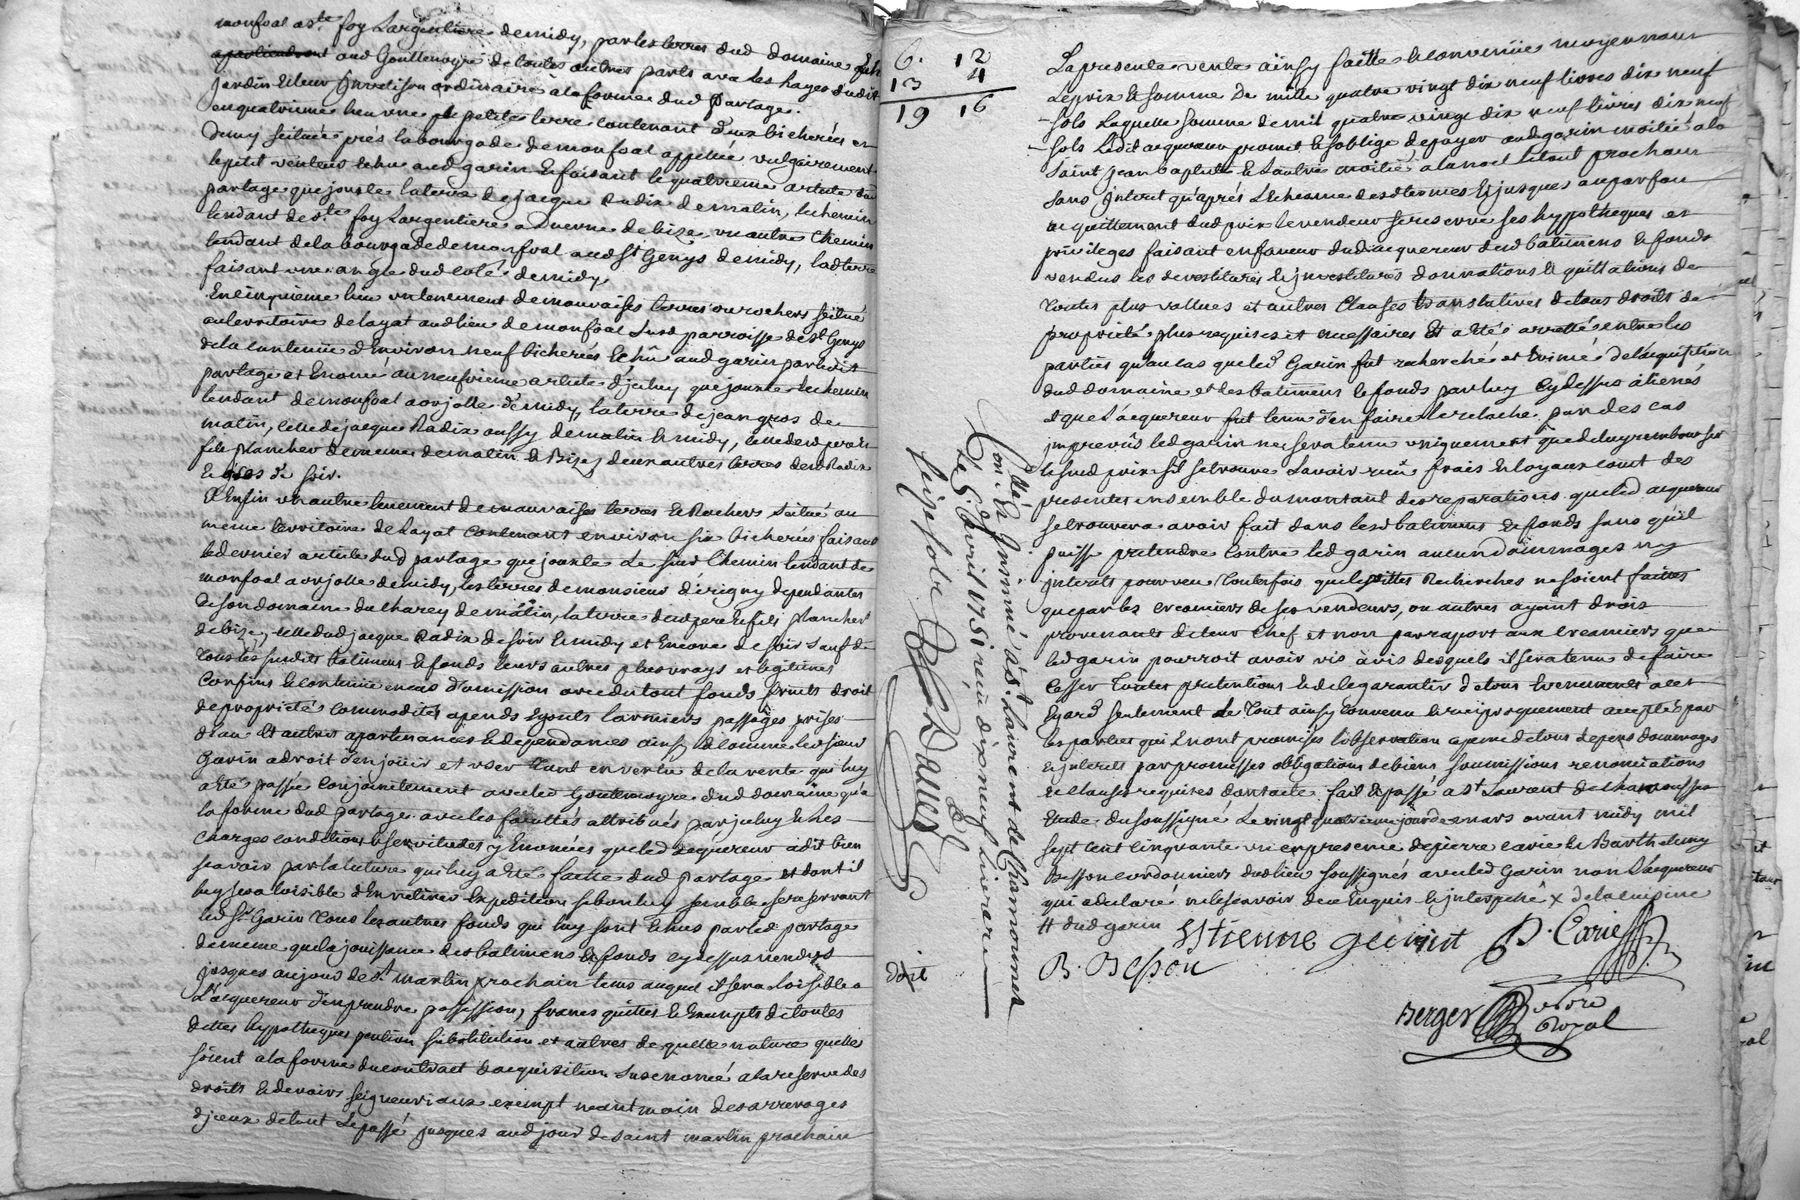 monfoal a Ste foy Largentiere de midy, par les terres dud domaine
aud Gouttenoyre de toutes autres parts avec les hayes dudit
jardin et leur ordinaire a la forme dud partage.
en quatrieme lieu une petite terre contenant deux bicherées et
demy scituée près la bourgade de monfoal appellée vulgairement
le petit echu aud garin et faisant le quatrieme article dud
partage que jouste la terre de jacque Radix de matin, le chemin
tendant de Ste foy Largentiere a de bize un autre chemin
tendant de la bourgade de monfoal aud St Genys de midy, lad terre
faisant une angle dud coté de midy
En cinquieme lieu un tenement de mauvaises terres ou rochers scitué
au territoire de layat aud lieu de monfoal susd parroisse de St Genys
de la contenüe d'environ neuf bicherées echû aud garin par ledit
partage et Enoncé au neufvieme article d'jceluy que jouxte le chemin
tendant de monfoal a orjolle de midy, la terre de jean gros de
matin, celle de jacque Radix aussy de matin et midy, celle de
fils Plancher de meme de matin et Bize, deux autres terres dud Radix
et de soir.
Et Enfin un autre tenement de mauvaises terres et Rochers scitué au
meme territoire de Layat contenant environ six bicherées faisant
le dernier article dud partage que jouxte le susd Chemin tendant de
monfoal a orjolle de midy, les terres de monsieur d'erigny dependantes
de son domaine du charey de matin, la terre desd pere et fils Plancher
de bize, celle dud jacque Radix de soir et midy et Encore de soir sauf de
tous les susdits batimens et fonds leurs autres plus vrays et legitimes
Confins et contenüe en cas d'omission avec du tout fonds fruits droit
de propriété commodités apends Egouts larmiers passages prises
d'eau Et autres apartenances et dependances ainsy et comme led sieur
Garin a droit d'en joüir et user tant en vertu de la vente qui luy
a été passée conjointement avec led Goutenoyre dud domaine qu'a
la forme dud partage avec les facultés attribuées par jceluy et les
charges conditions et servitudes y Enoncées que led acquereur a dit bien
scavoir par la lecture qui luy a été faitte dud partage et dont il
luy sera loisible d'En retirer Expedition si bon luy semble se reservant
led Sr Garin tous les autres fonds qui luy sont echus par led partage
de meme que la jouissance des batimens et fonds cy dessus vendus
jusques au jour de St martin prochain tems auquel il sera loisible a
L'acquereur d'en prendre possession, francs quittes et Exempts de toutes
dettes hypotheques pention substitution et autres de quelle nature quelles
soient a la forme du contract d'acquisition susenoncé a la reserve des
droits et devoirs seigneuriaux exempt neantmoin des arrerages
d'jceux de tout Le passé jusques aud jour de saint martin prochain
6. 12
13 4
19 16
Con.lé Et Insinué a St Laurent de Chamousset
Le 6. avril 1751 reçu dix neuf livres
seize sols
doit
La presente vente ainsy faitte et convenüe moyennant
Le prix et somme de mille quatre vingt dix neuf livres dix neuf
sols Laquelle somme de mil quatre vingt dix neuf livres dix neuf
sols Ledit acquereur promet et soblige de payer aud garin moitié a la
saint jean baptiste et L'autre moitié a la noel Le tout prochain
sans jnteret qu'aprés L'echeance desd termes et jusques au parfait
acquittement dud prix le vendeur se reserve ses hyppotheques et
privileges faisant en faveur dud acquereur desd batimens et fonds
vendus les devestitures et jnvestitures donnations et quittations de
toutes plus vallues et autres Clauses translatives de tous droits de
propriété plus requises et necessaires Et a été arretté entre les
parties qu'au cas que led Garin fut recherché et Evincé de l'acquisition
dud domaine et les batimens et fonds par luy cy dessus alienés
et que L'acquereur fut tenu d'en faire le relache par des cas
imprevus led garin ne sera tenu uniquement que de luy rembourser
le susd prix sil se trouve L'avoir reçu frais et loyaux cout des
presentes ensemble du montant des reparations que led acquereur
se trouvera avoir fait dans lesd batimens et fonds sans qu'il
puisse pretendre contre led garin aucun dommages ny
jnterets pourveu toutefois que lesdittes Recherches ne soient faittes
que par les creanciers de ses vendeurs, ou autres ayant droit
provenants de leur Chef et non par raport aux creanciers que
led garin pourroit avoir vis à vis desquels il sera tenu de faire
cesser toutes pretentions et de le garantir de tous evenements a cet
Egard seulement Le Tout ainsy convenu et reciproquement accepté par
les parties qui En ont promises l'observation a peine de tous depens dommages
et jnterets par promesses obligations de biens soumissions renonciations
et clauses requises dont acte fait et passé a St Laurent de chamousset
Etude du soussigné Le vingt quatrieme jour de mars avant midy mil
sept cent cinquante un en presence de pierre carie et Barthelemy
Besson cordonniers dud lieu soussignés avec led Garin non L'acquereur
qui a declaré ne le scavoir de ce Enquis et jnterpellé x de la cuisine
# dud garin Estienne gecirint P. Carie
B. Beson
Berger Nore
Royal